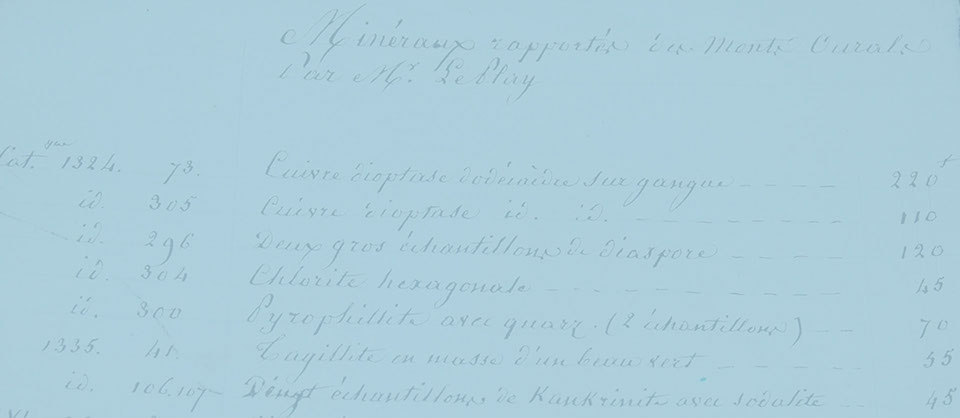 Minéraux rapportés des Monts Ourals
Par Mr. Le Play
Cat.gue 1324. 73. Cuivre dioptase dodécaèdre sur gangue - - - - - 220f
id. 305 Cuivre dioptase id. id. - - - - - - - - - - 110
id. 296 Deux gros échantillons de diaspore - - - - - 120
id. 304 Chlorite hexagonale - - - - - - - - - - 45
id. 300 Pyrophillite avec quarz. (2 échantillons) - - 70
1335. 41. Tagillite en masse d'un beau vert - - - - - 35
id. 106.107 échantillons de Kankrinite avec sodalite - - 45